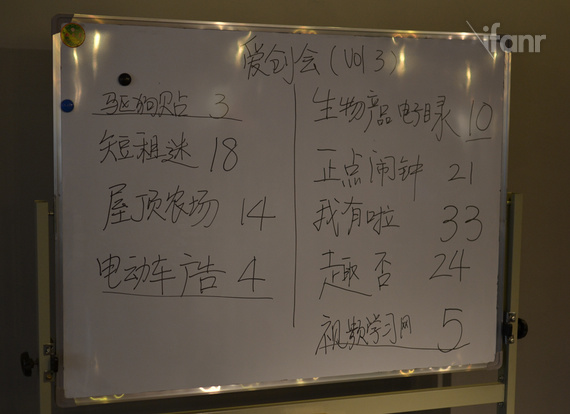 ifanr
爱创会(Vol 3)
驱狗贴 3
短租迷 18
屋顶农场 14
电动车广告 4
生物产品电子目录 10
正点闹钟 21
我有啦 33
趣否 24
视频学习网 5